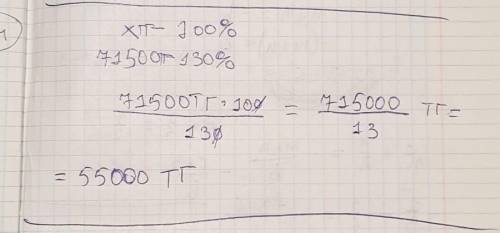 1
xтг - 100%
71500тг 130%
71500тг · 100 / 130 = 715000 / 13 тг =
= 55000 тг